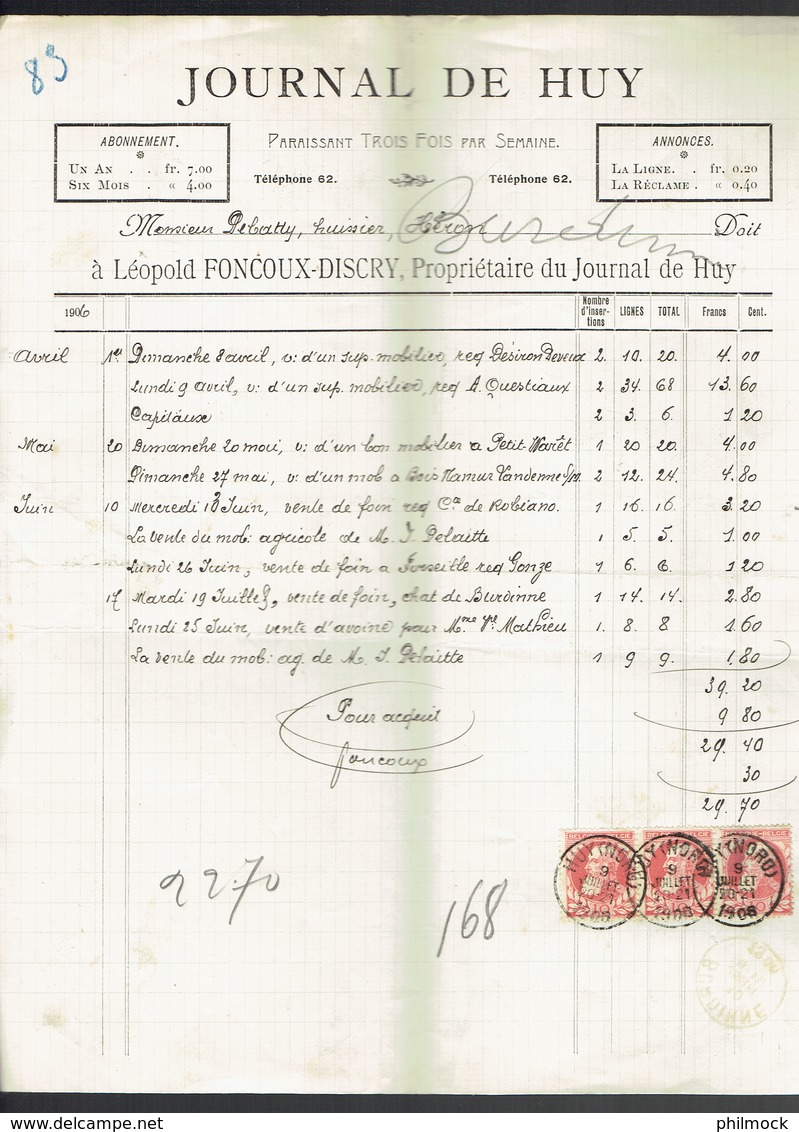 89
JOURNAL DE HUY
ABONNEMENT.
UN AN . . fr. 7.00
SIX MOIS . « 4.00
PARAISSANT TROIS FOIS PAR SEMAINE.
Téléphone 62. Téléphone 62.
ANNONCES.
LA LIGNE. . fr. 0.20
LA RÉCLAME . « 0.40
Monsieur Debatty, huissier, Héron Doit
à Léopold FONCOUX-DISCRY, Propriétaire du Journal de Huy
1906 Nombre d'insertions LIGNES TOTAL Francs Cent.
Avril 1er Dimanche 8 avril, v: d'un sup. mobilier, req Désiron Deveux 2. 10. 20. 4. 00
Lundi 9 avril, v: d'un sup. mobilier, req A. Questiaux 2 34. 68 13. 60
Capitaux 2 3. 6. 1 20
Mai 20 Dimanche 20 mai, v: d'un bon mobilier a Petit-Warêt 1 20 20. 4.00
Dimanche 27 mai, v: d'un mob a Bois Namur Vandenne 2 12. 24. 4.80
Juin 10 Mercredi 13 Juin, vente de foin req Cte de Robiano. 1 16. 16. 3.20
La vente du mob: agricole de M. J. Delaitte 1 5. 5. 1.00
Lundi 26 Juin, vente de foin a Forseille req Gonze 1 6. 6. 1 20
17 Mardi 19 Juillet, vente de foin, chat de Burdinne 1 14. 14. 2.80
Lundi 25 Juin, vente d'avoine pour Mme Ve Mathieu 1. 8. 8 1.60
La vente du mob: ag. de M. J. Delaitte 1 9 9. 1.80
39. 20
9 80
29. 40
30
29. 70
Pour acquit
Foncoux
2270
168
BELGIQUE-BELGIE
HUY (NORD)
9
JUILLET
20-21
1906
HUY (NORD)
9
JUILLET
20-21
1906
HUY (NORD)
9
JUILLET
20-21
1906
BURDINNE
philmock